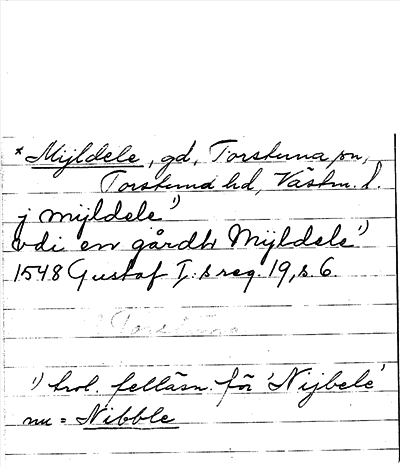 * Mijldele, gd, Torstuna sn,
Torstuna hd, Västm. l.
j mijldele¹)
vdi en gårdh Mijldele¹)
1548 Gustaf I:s reg. 19, s. 6.
Torstuna
¹) trol. felläsn. för 'Nijbele'
nu = Nibble